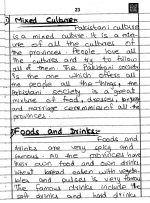 23
Mixed Culture:
Pakistani culture
is a mixed culture. It is a mix-
ure of all the cultures of
the provinces. People love all
the cultures and try to follow
all of them. The Pakistani society
is the one which offers all
the people all the things. The
Pakistani society is a great
mixture of food, dresses,
and marriage ceremonies of all the
provinces.
Foods and Drinks:
Foods and
drinks are very spicy and
famous. All the provinces have
their own food and own drinks
Wheat bread eaten with vegeta-
bles and pulses is very famous
The famous drinks include the
soft drinks and hard drinks